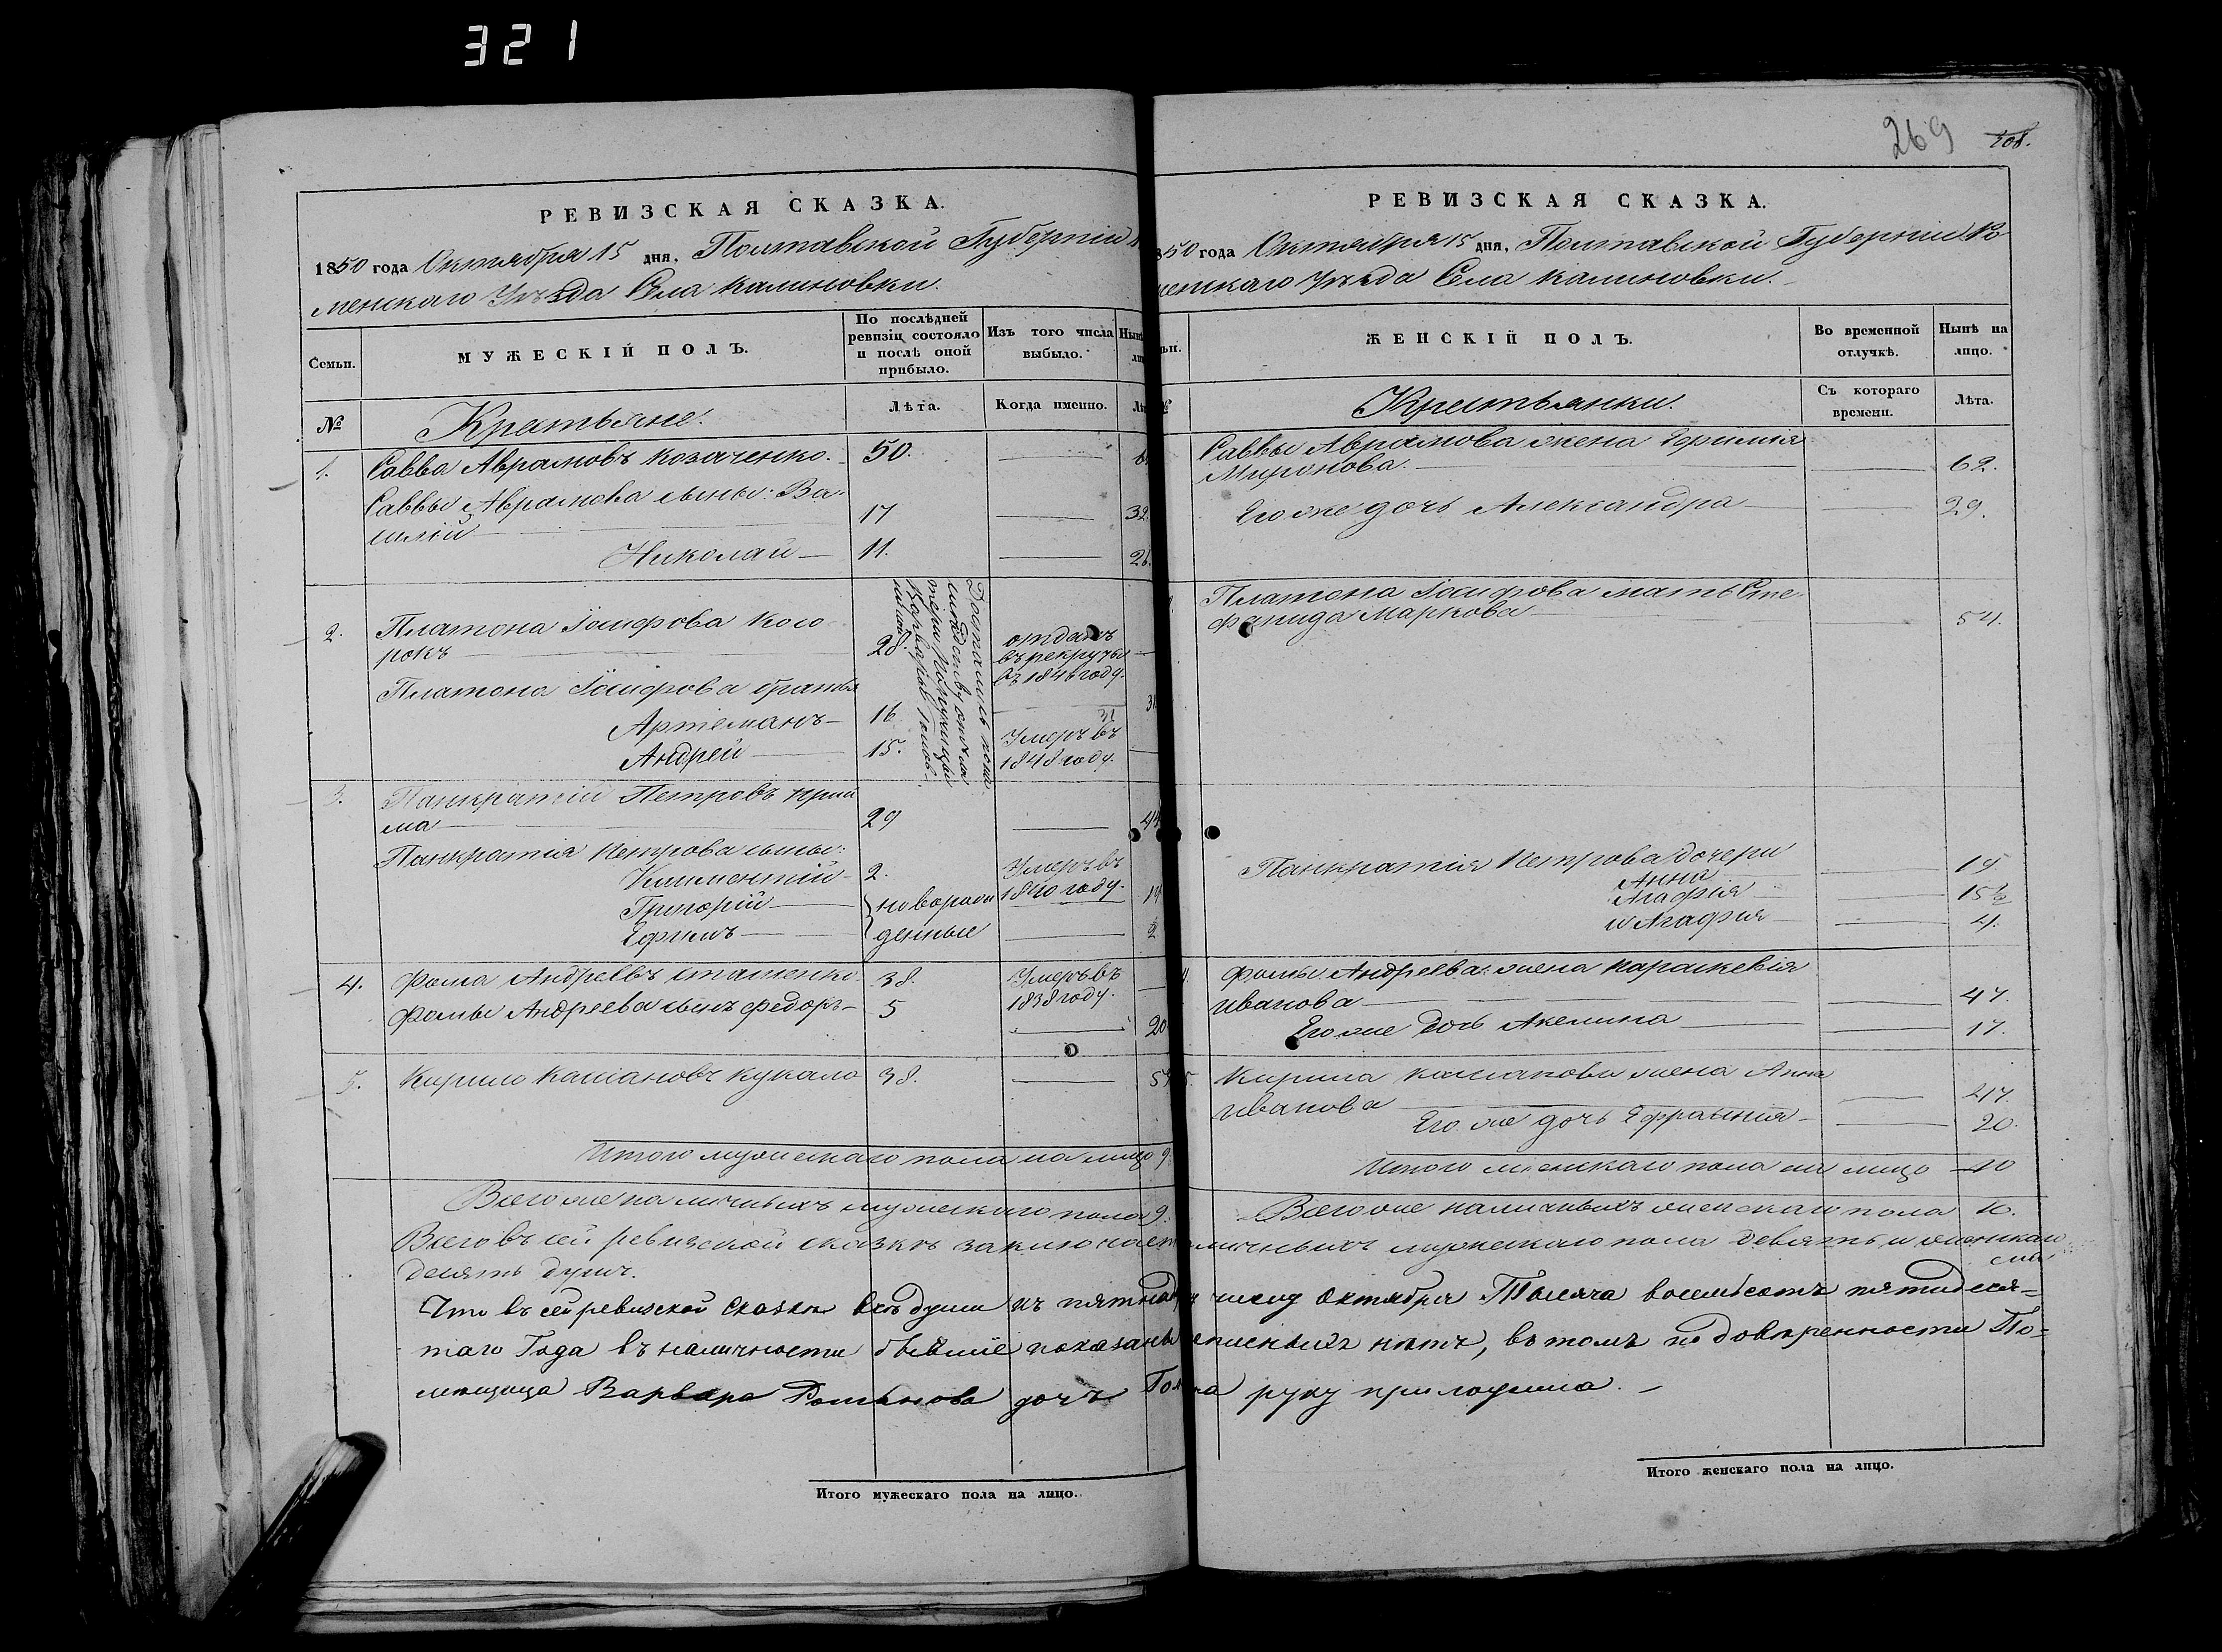 321
269
208.
РЕВИЗСКАЯ СКАЗКА.
1850 года Октября 15 дня, Полтавской Губерніи
менскаго Уѣзда Села Калиновки.
Семьи.
МУЖЕСКІЙ ПОЛЪ.
По послѣдней ревизіи состояло и послѣ оной прибыло.
Изъ того числа выбыло.
№
Крестьяне.
Лѣта.
Когда именно.
1. Савва Аврамовъ Козаченко. 50.
Саввы Аврамова сыны: Ва-
силій 17 32
Николай 11. 26
2. Платона Іосифова Косо
рокъ 28. отданъ въ рекруты въ 1846 году.
Платона Іосифова братья
Артемонъ 16 31
Андрей 15. Умеръ въ 1848 году.
3. Панкратій Петровъ Прий
ма 29 44
Панкратія Петрова сыны:
Климентій 2. Умеръ въ 1840 году.
Григорій новорож 14
Ефимъ денные 2
4. Фома Андреевъ Сташенко 38. Умеръ въ 1838 году.
Фомы Андреева сынъ Федоръ 5 20
5. Кирило Касіановъ Кукало 38. 53
Итого мужескаго пола на лицо 9
Всего же наличныхъ мужескаго пола 9.
Всего въ сей ревизской сказкѣ заключает
десять душъ.
Что въ сей ревизской сказкѣ всѣ души къ пятнад
таго Года въ наличности бывшіе показаны
мѣщица Варвара Романова дочь
Итого мужескаго пола на лицо.
РЕВИЗСКАЯ СКАЗКА.
850 года Октября 15 дня, Полтавской Губерніи Ро-
менскаго Уѣзда Села Калиновки.
ЖЕНСКІЙ ПОЛЪ.
Во временной отлучкѣ.
Нынѣ на лицо.
Крестьянки.
Съ котораго времени.
Лѣта.
Саввы Аврамова жена Ефимія
Миронова. 62.
Его же дочь Александра 29.
Платона Іосифова мать Сте-
фанида Маркова 54.
Панкратія Петрова дочери
Анна 19
Агафія 15½
и Агафия 4.
Фомы Андреева жена Параскевія
Иванова 47.
Его же дочь Акелина 17.
Кирила Касіанова жена Анна
Иванова 47.
Его же дочь Ефрасинія 20.
Итого женскаго пола на лицо 10
Всего же наличныхъ женскаго пола 10.
личныхъ мужескаго пола девять и женскаго
числу Октября Тысяча восемьсотъ пятидеся=
писныхъ нѣтъ, въ томъ по довѣренности По=
на руку приложила.
Итого женскаго пола на лицо.